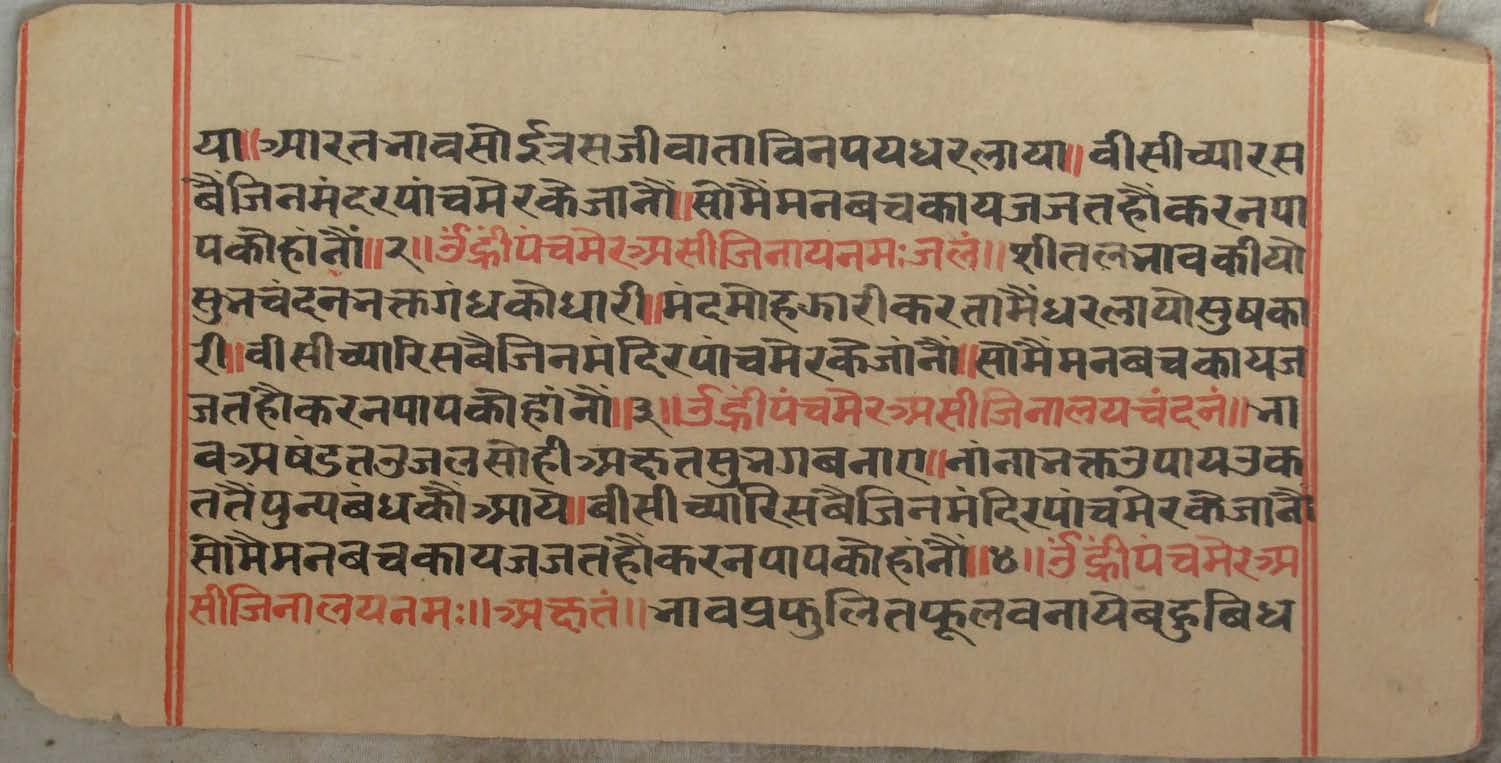 या॥आरतभावसोईत्रसजीवाताविनपयधरलाया॥वीसीच्यारस
बैंजिनमंदरपांचमेरकेजानौं॥सोमैंमनबचकायजजतहौंकरनपा
पकोहांनौं॥२॥ॐह्रींपंचमेरअसीजिनायनमःजलं॥शीतलभावकीयो
सुभचंदनभक्तगंधकोधारी॥मंदमोहझारीकरतामैंधरलायोसुषका
री॥वीसीच्यारिसबैजिनमंदिरपांचमेरकेजांनौं॥सोमैंमनबचकायज
जतहौंकरनपापकोहांनौं॥३॥ॐह्रींपंचमेरअसीजिनालयचंदनं॥भा
वअषंडतउजलसोहीअक्षतसुभगबनाए॥नांनाभक्तउपायउक
ततैंपुन्यबंधकौंआये॥बीसीच्यारिसबैजिनमंदिरपांचमेरकेजानौं
सोमैमनबचकायजजतहौंकरनपापकोहांनौं॥४॥ॐह्रींपंचमेरअ
सीजिनालयनमः॥अक्षतं॥भावप्रफुलितफूलवनायेबहुबिध